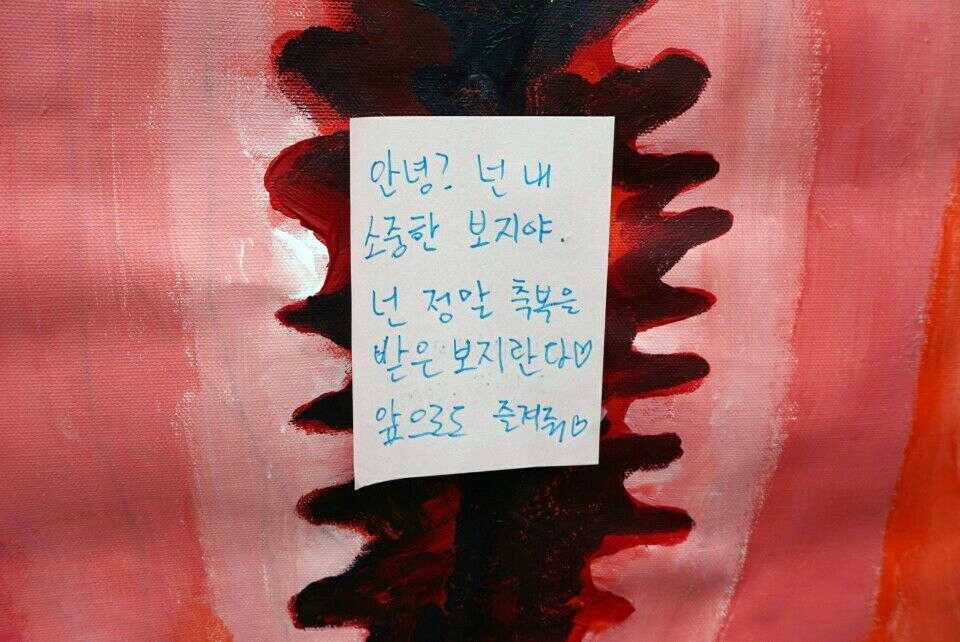 안녕? 넌 내
소중한 보지야.
넌 정말 축복을
받은 보지란다♡
앞으로도 즐겨줘♡